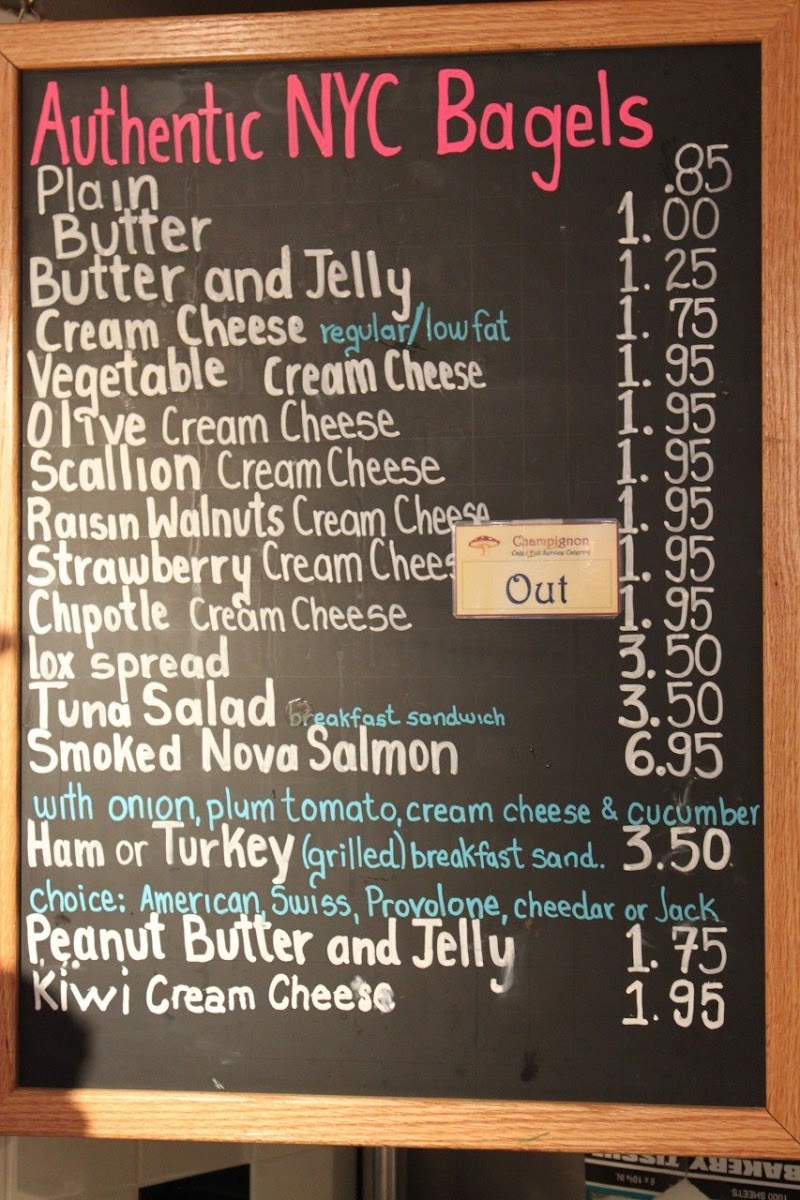 Authentic NYC Bagels
Plain .85
Butter 1.00
Butter and Jelly 1.25
Cream Cheese regular/lowfat 1.75
Vegetable Cream Cheese 1.95
Olive Cream Cheese 1.95
Scallion Cream Cheese 1.95
Raisin Walnuts Cream Cheese 1.95
Strawberry Cream Chees 1.95
Champignon
Café / Full Service Catering
Out
Chipotle Cream Cheese 1.95
lox spread 3.50
Tuna Salad breakfast sandwich 3.50
Smoked Nova Salmon 6.95
with onion, plum tomato, cream cheese & cucumber
Ham or Turkey (grilled) breakfast sand. 3.50
choice: American, Swiss, Provolone, cheedar or Jack
Peanut Butter and Jelly 1.75
Kiwi Cream Cheese 1.95
BAKERY TISSU
1000 SHEETS